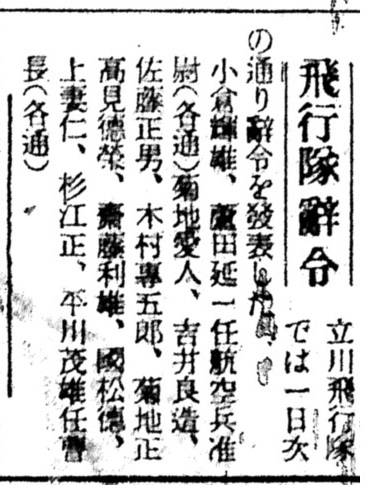 飛行隊辭令
立川飛行隊
では一日次
の通り辭令を發表した、
小倉輝雄、田延一任航空兵准
尉(各通)菊地愛人、吉井良造、
佐藤正男、木村專五郎、菊地正
高見德榮、齋藤利雄、國松德、
上妻仁、杉江正、平川茂雄任曹
長(各通)